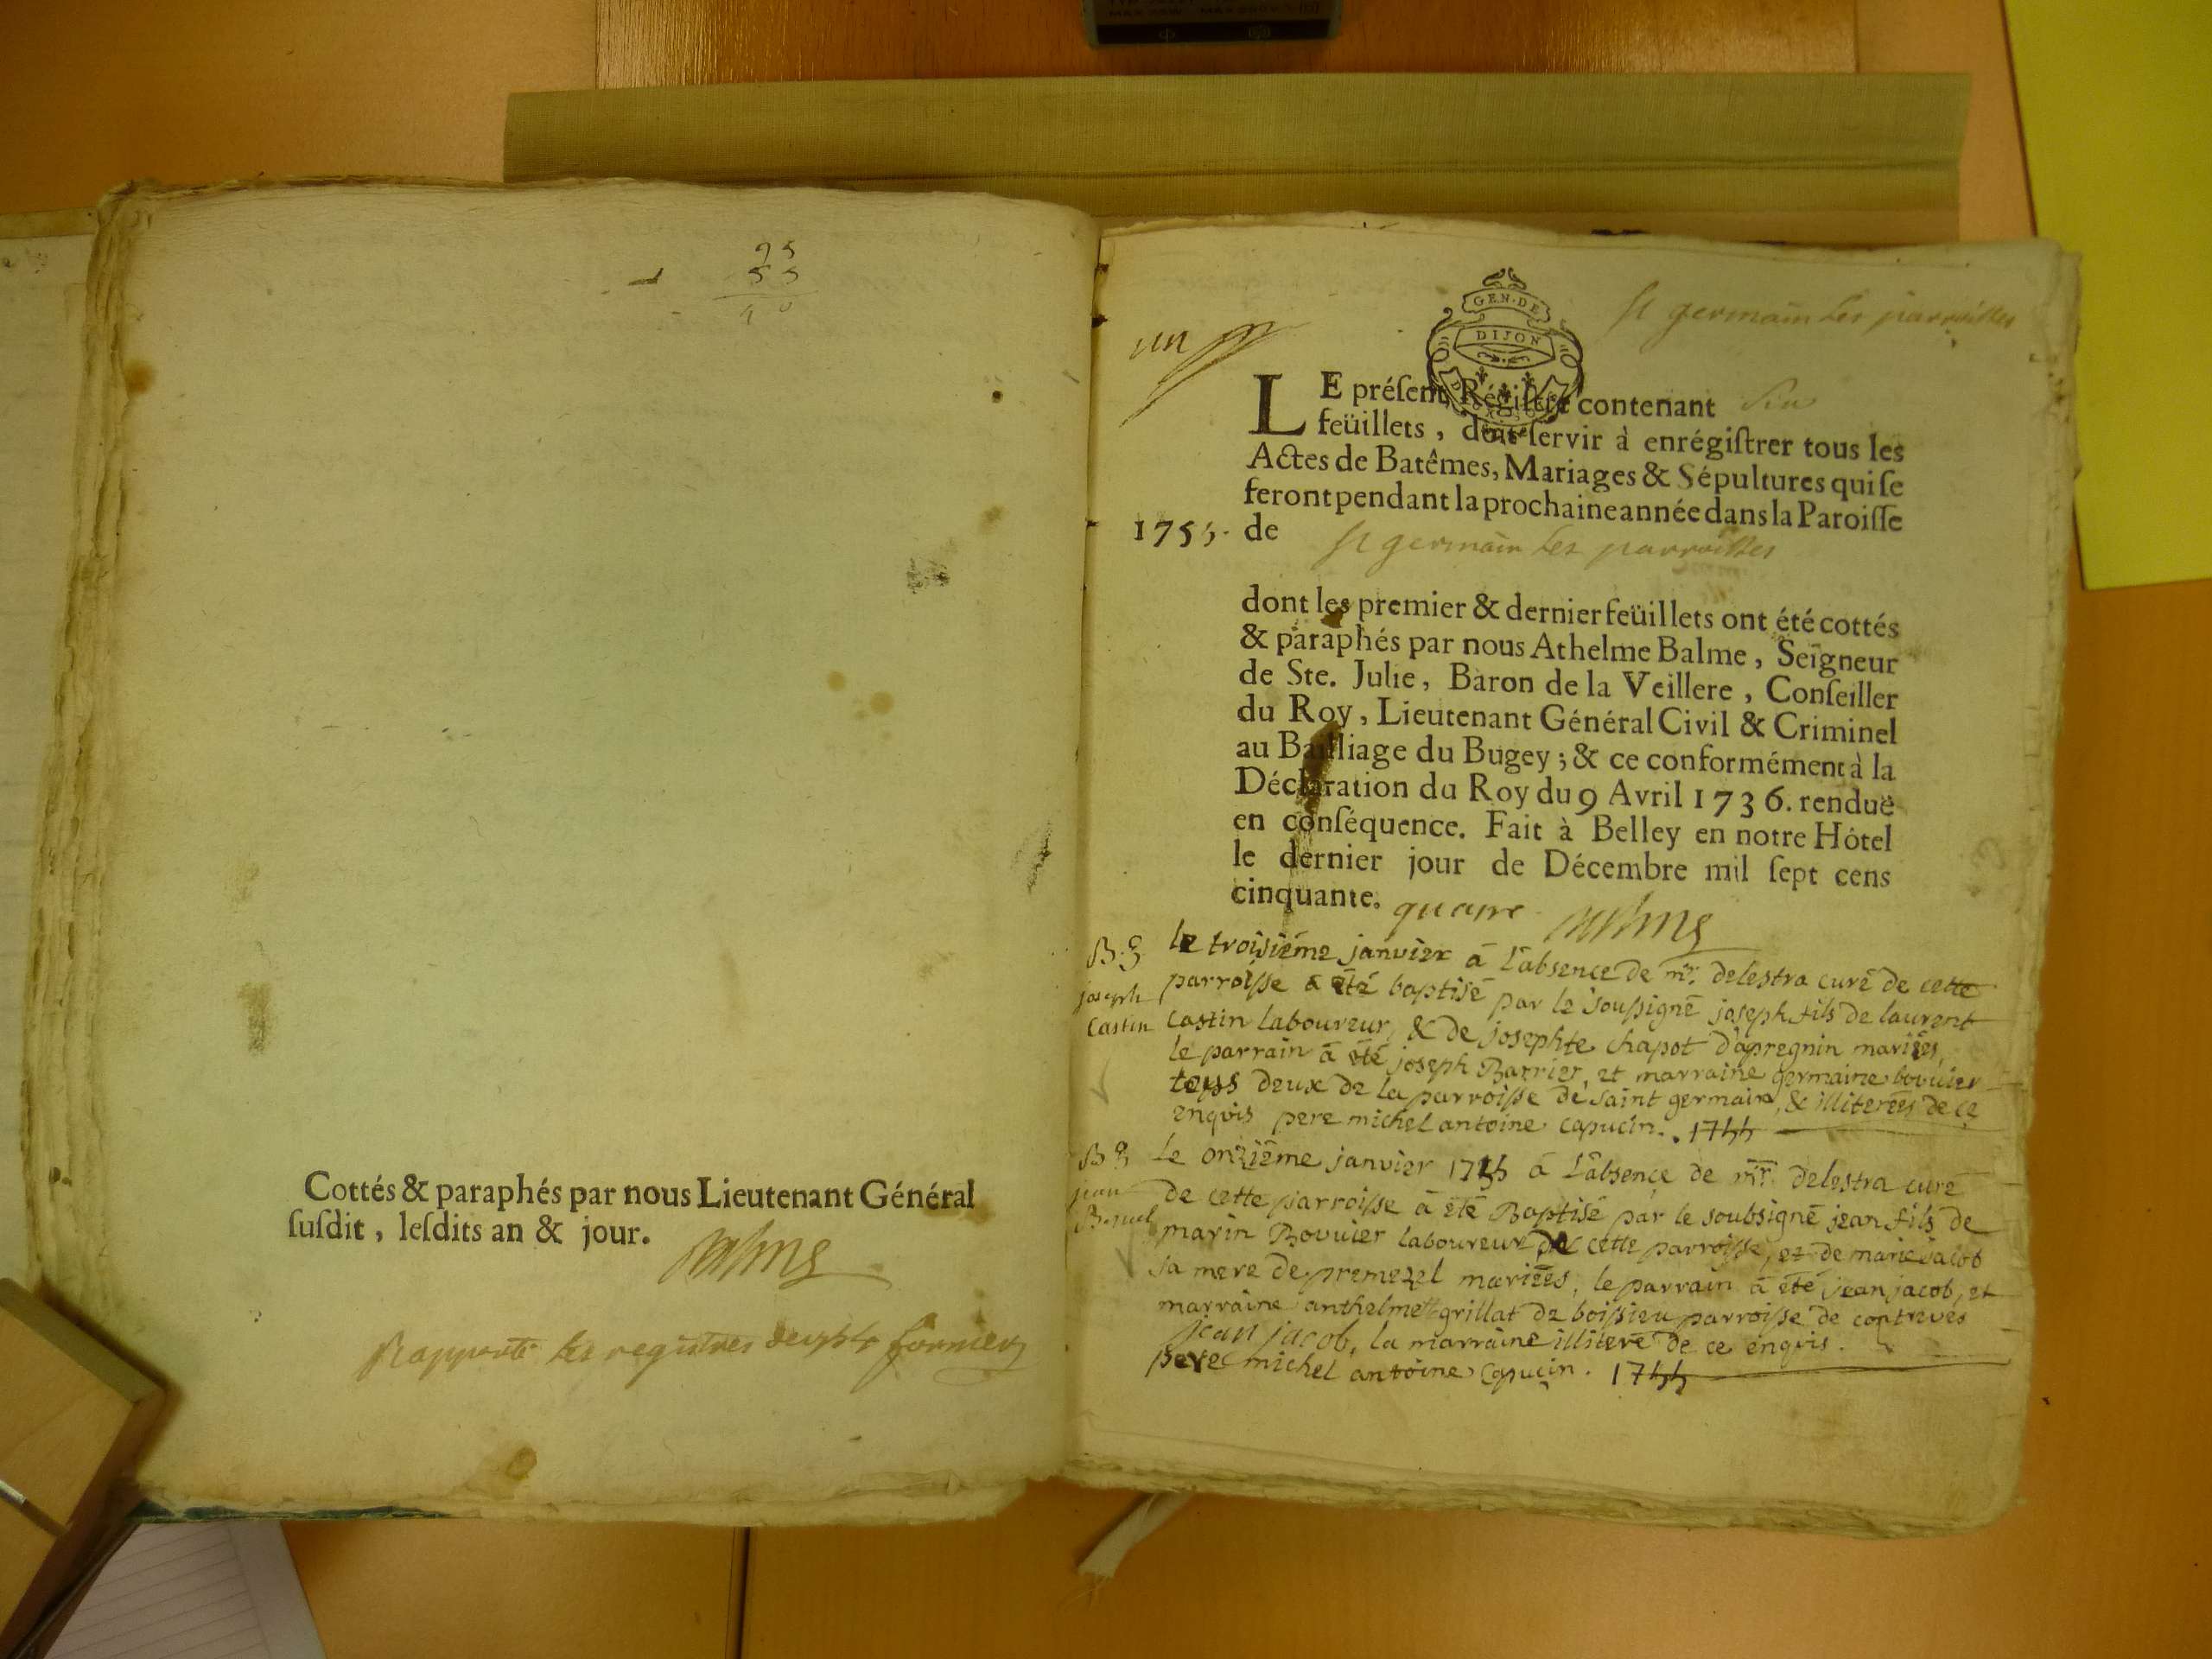 95
55
40
Cottés & paraphés par nous Lieutenant Général
ſuſdit, leſdits an & jour.
Balme
Rapporté les registres
un
GEN. DE
DIJON
st germain les parroisses
LE préſent Régiſtre contenant six
feüillets, doit ſervir à enrégiſtrer tous les
Actes de Batêmes, Mariages & Sépultures qui ſe
feront pendant la prochaine année dans la Paroiſſe
1755. de st germain les parroisses
dont les premier & dernier feüillets ont été cottés
& paraphés par nous Athelme Balme, Seigneur
de Ste. Julie, Baron de la Veillere, Conſeiller
du Roy, Lieutenant Général Civil & Criminel
au Bailliage du Bugey; & ce conformément à la
Déclaration du Roy du 9 Avril 1736. renduë
en conſéquence. Fait à Belley en notre Hôtel
le dernier jour de Décembre mil ſept cens
cinquante. quatre Balme
B. le troisiéme janvier á l'absence de mr. delestra curé de cette
joseph parroisse á été baptisé par le soussigné joseph fils de laurent
Castin Castin laboureur, & de josephte chapot d'apregnin mariés,
le parrain á été joseph Barrier, et marraine germaine bovuier
tous deux de la parroisse de saint germain, & illiterées de ce
enquis pere michel antoine capucin. 1755
B. Le onziéme janvier 1755 á l'absence de mr. delestra curé
jean de cette parroisse á été Baptisé par le soubsigné jean fils de
marin Bovuier laboureur de cette parroisse, et de marie jacob
sa mere de premezel mariées, le parrain á été jean jacob, et
marraine anthelmette grillat de boissieu parroisse de contreves
jean jacob, la marraine illiteré de ce enquis.
pere michel antoine Capucin. 1755